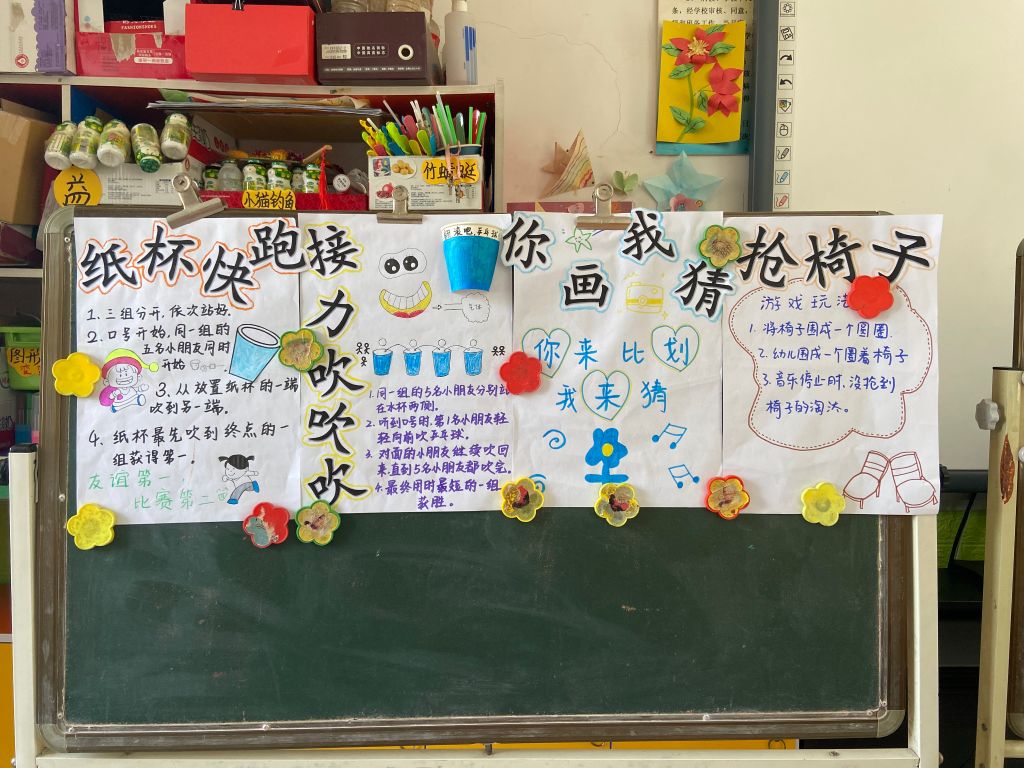 六
四
小猫钓鱼
竹蜻蜓
FASHIONSHOES
条，经学校审核、同意，
图形
纸杯快跑
1. 三组分开，依次站好.
2. 口号开始，同一组的
五名小朋友同时
开始
3. 从放置纸杯的一端
吹到另一端.
4. 纸杯最先吹到终点的一
组获得第一.
友谊第一，
比赛第二
接力吹吹吹
气体
1. 同一组的5名小朋友分别站
在水杯两侧.
2. 听到口号时，第1名小朋友轻
轻向前吹乒乓球.
3. 对面的小朋友继续吹回
来，直到5名小朋友都吹完.
4. 最终用时最短的一组
获胜。
你画我猜
你来比划
我来猜
抢椅子
游戏玩法
1. 将椅子围成一个圆圈.
2. 幼儿围成一个圈着椅子
3. 音乐停止时，没抢到
椅子的淘汰.